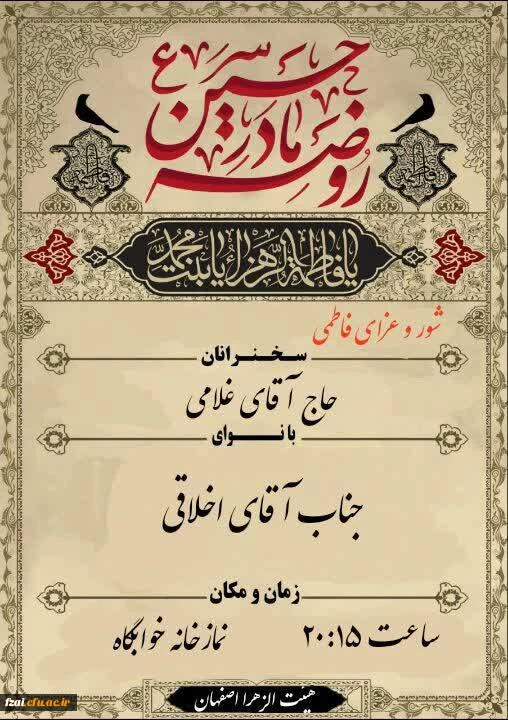 روضه مادر حسین سرع
فاطمه
فاطمه
یا فاطمة الزهراء یا بنت محمد
شور و عزای فاطمی
سخنرانان
حاج آقای غلامی
با نوای
جناب آقای اخلاقی
زمان و مکان
ساعت ۲۰:۱۵ نمازخانه خوابگاه
هیئت الزهرا اصفهان
fzai.cfu.ac.ir